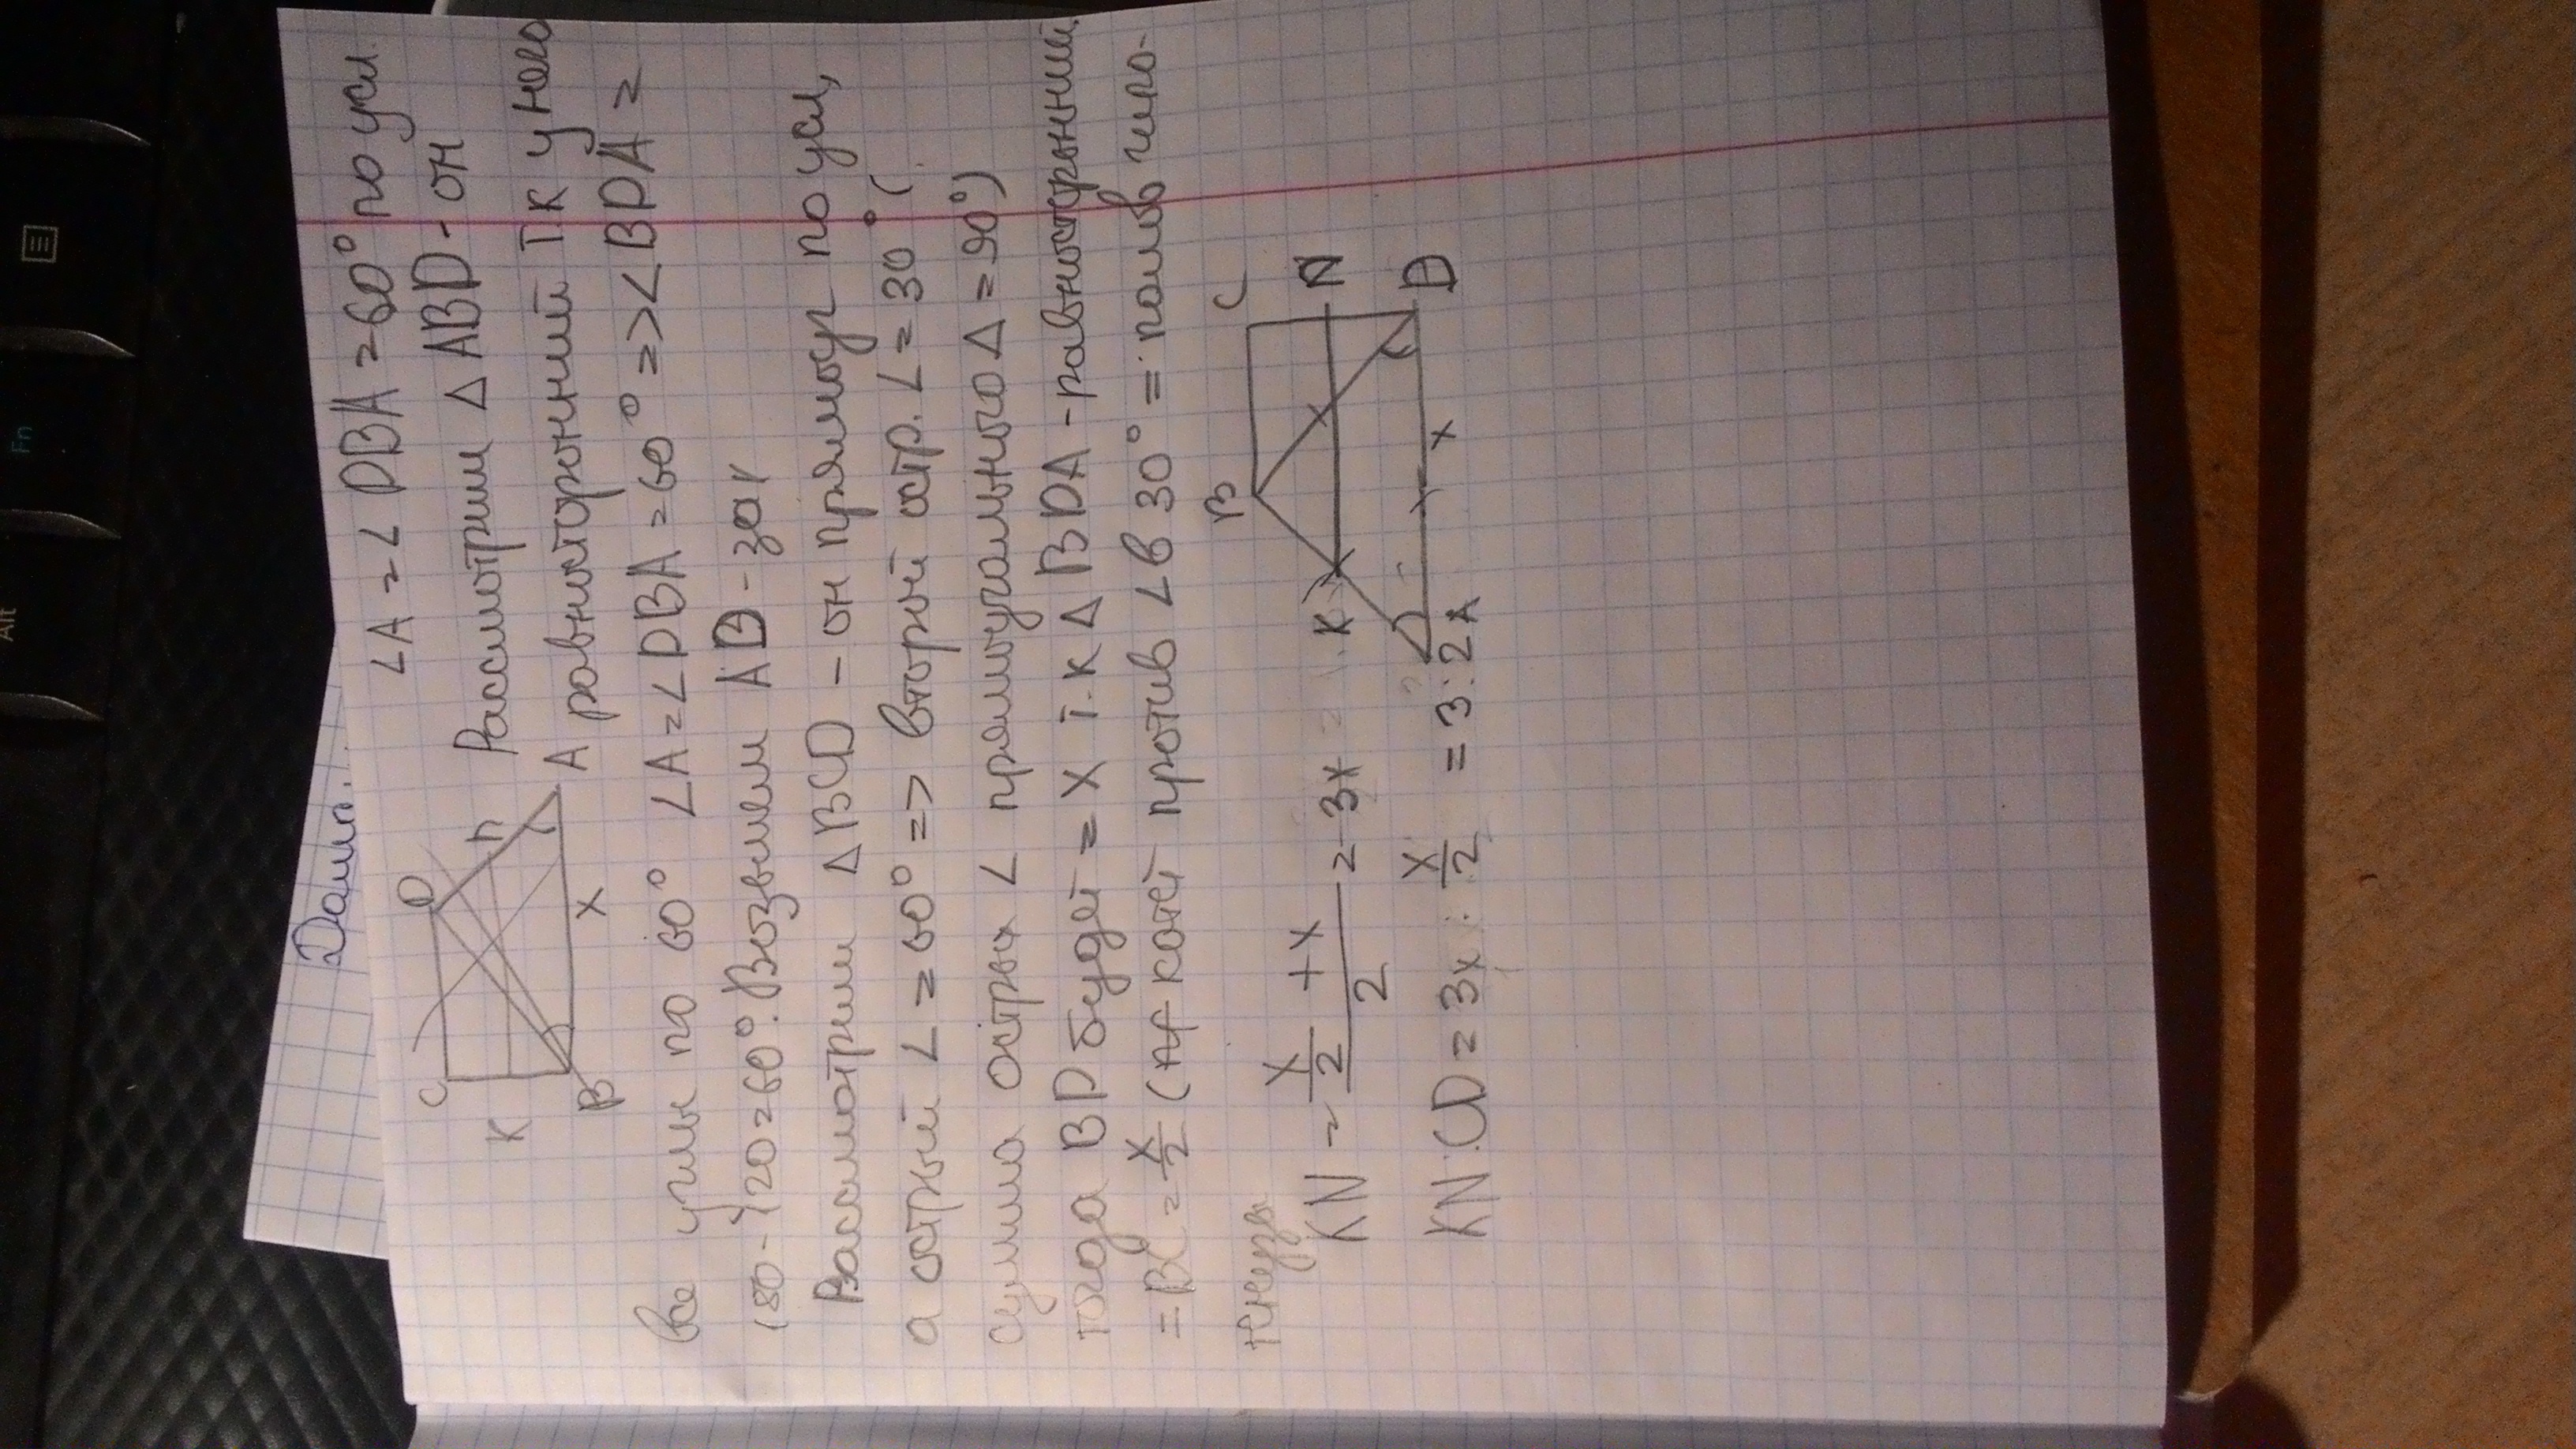 Дат.
C
D
K
n
B
x
A
∠A = ∠DBA = 60° по усл.
Рассмотрим △ABD - он
равносторонний т.к у него
все углы по 60° ∠A = ∠DBA = 60° => ∠BDA =
180 - 120 = 60°. Возьмем AD - за x
Рассмотрим △BCD - он прямоуг по усл,
а острый ∠ = 60° => второй остр. ∠ = 30° (
сумма острых ∠ прямоугольного △ = 90°)
тогда BD будет = x т.к △BDA - равносторонний
= BC = x/2 (катет против ∠ в 30° = полов гипо-
тенузы
KN = (x/2 + x)/2 = 3x
KN : CD = 3x : x/2 = 3:2
B
C
K
N
A
x
D